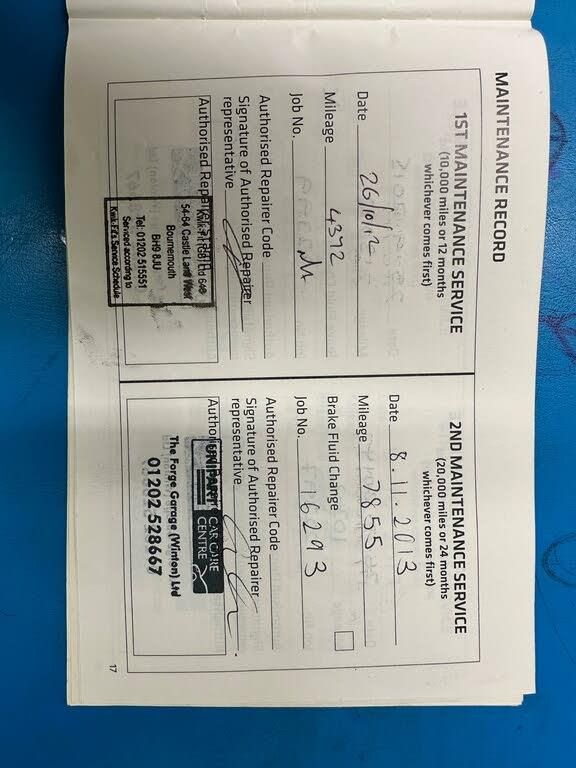 MAINTENANCE RECORD
1ST MAINTENANCE SERVICE
(10,000 miles or 12 months
whichever comes first)
Date 26/10/12
Mileage 4392
Job No.
Authorised Repairer Code
Signature of Authorised Repairer
representative
Authorised Repairer
54-64 Castle Lane West
Bournemouth
BH9 8JU
Tel: 01202 515551
Serviced according to
Kwik-Fit's Service Schedule
2ND MAINTENANCE SERVICE
(20,000 miles or 24 months
whichever comes first)
Date 8.11.2013
Mileage 7855
Brake Fluid Change
Job No. 16293
Authorised Repairer Code
Signature of Authorised Repairer
representative
UNIPART CAR CARE
CENTRE
The Forge Garage (Winton) Ltd
01202 528667
17